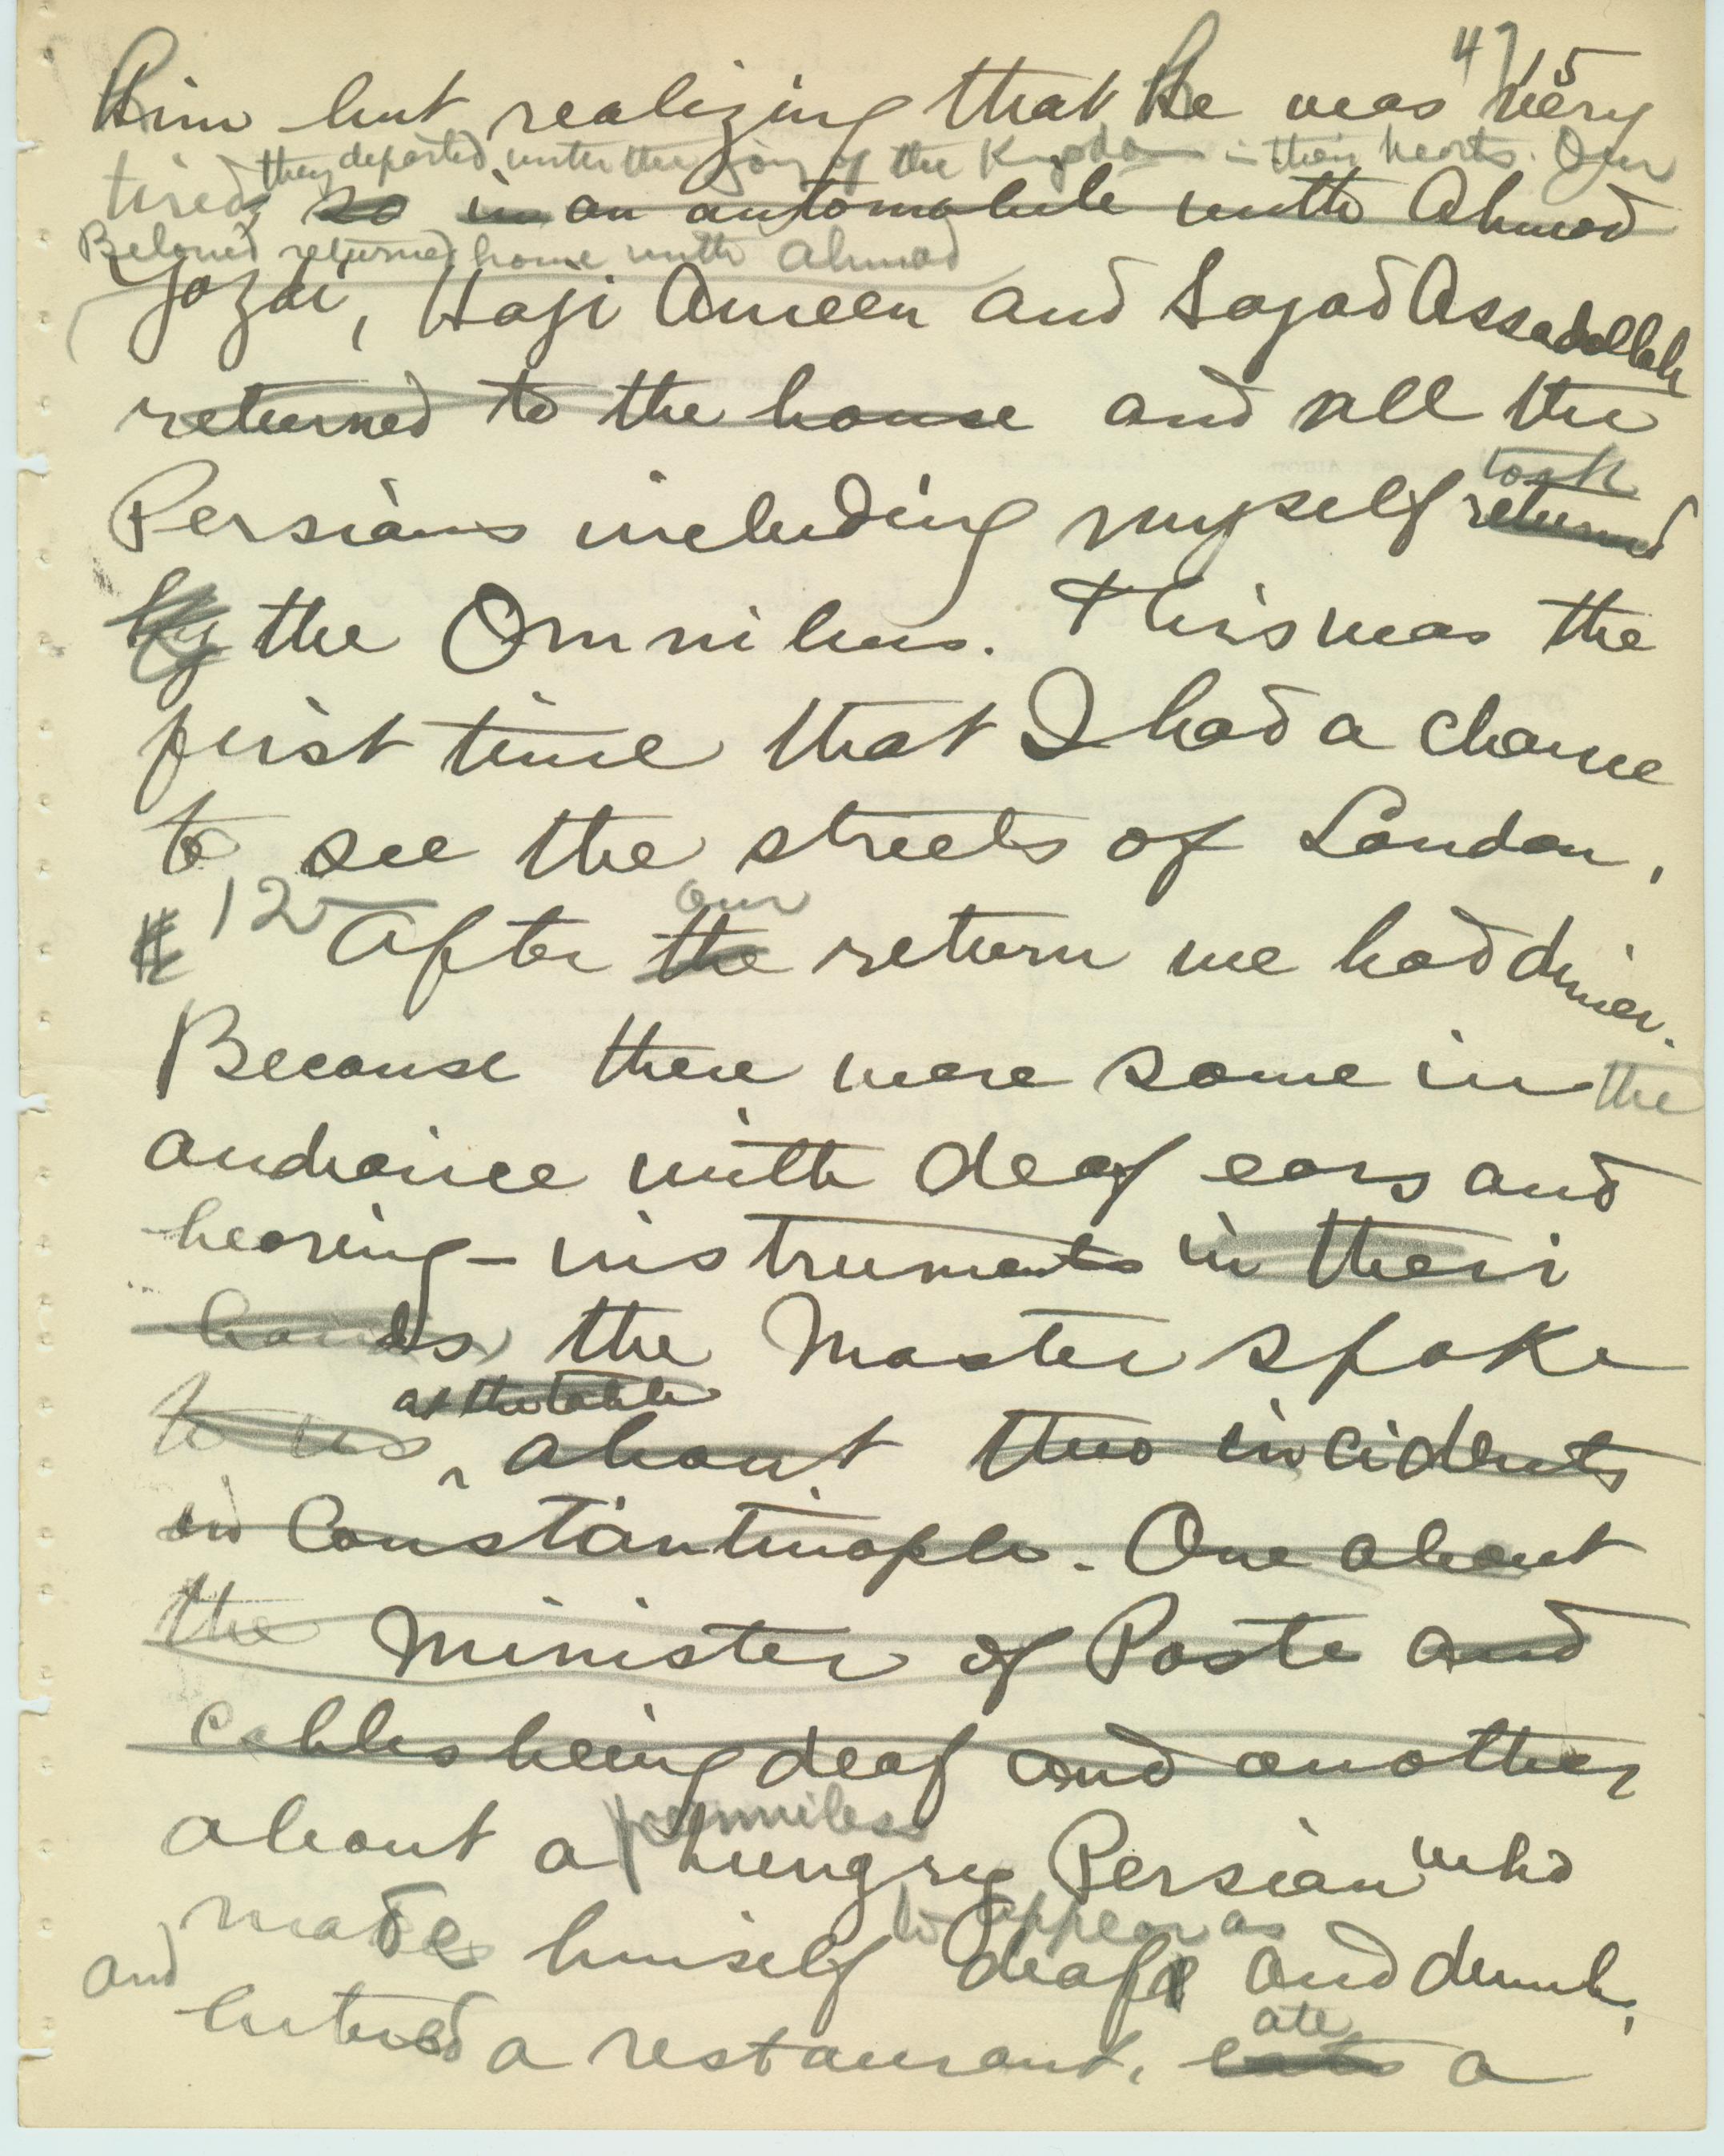 47/15
Him but realizing that He was very
they departed with the joy of the Kingdom in their hearts. Our
tired, so in an automobile with Ahmad
Beloved returned home with Ahmad
Yazdi, Haji Ameen and Sayad Assadollah
returned to the house and all the
took
Persians including myself returned
by the Omnibus. This was the
first time that I had a chance
to see the streets of London.
our
12 After the return we had dinner.
Because there were some in the
audience with deaf ears and
hearing-instruments in their
hands, the Master spoke
at the table
to us, about two incidents
in Constantinople. One about
the Minister of Posts and
cables being deaf and another
penniless
about a hungry Persian who
to appear as
made himself deaf and dumb,
and
ate
entered a restaurant, eats a